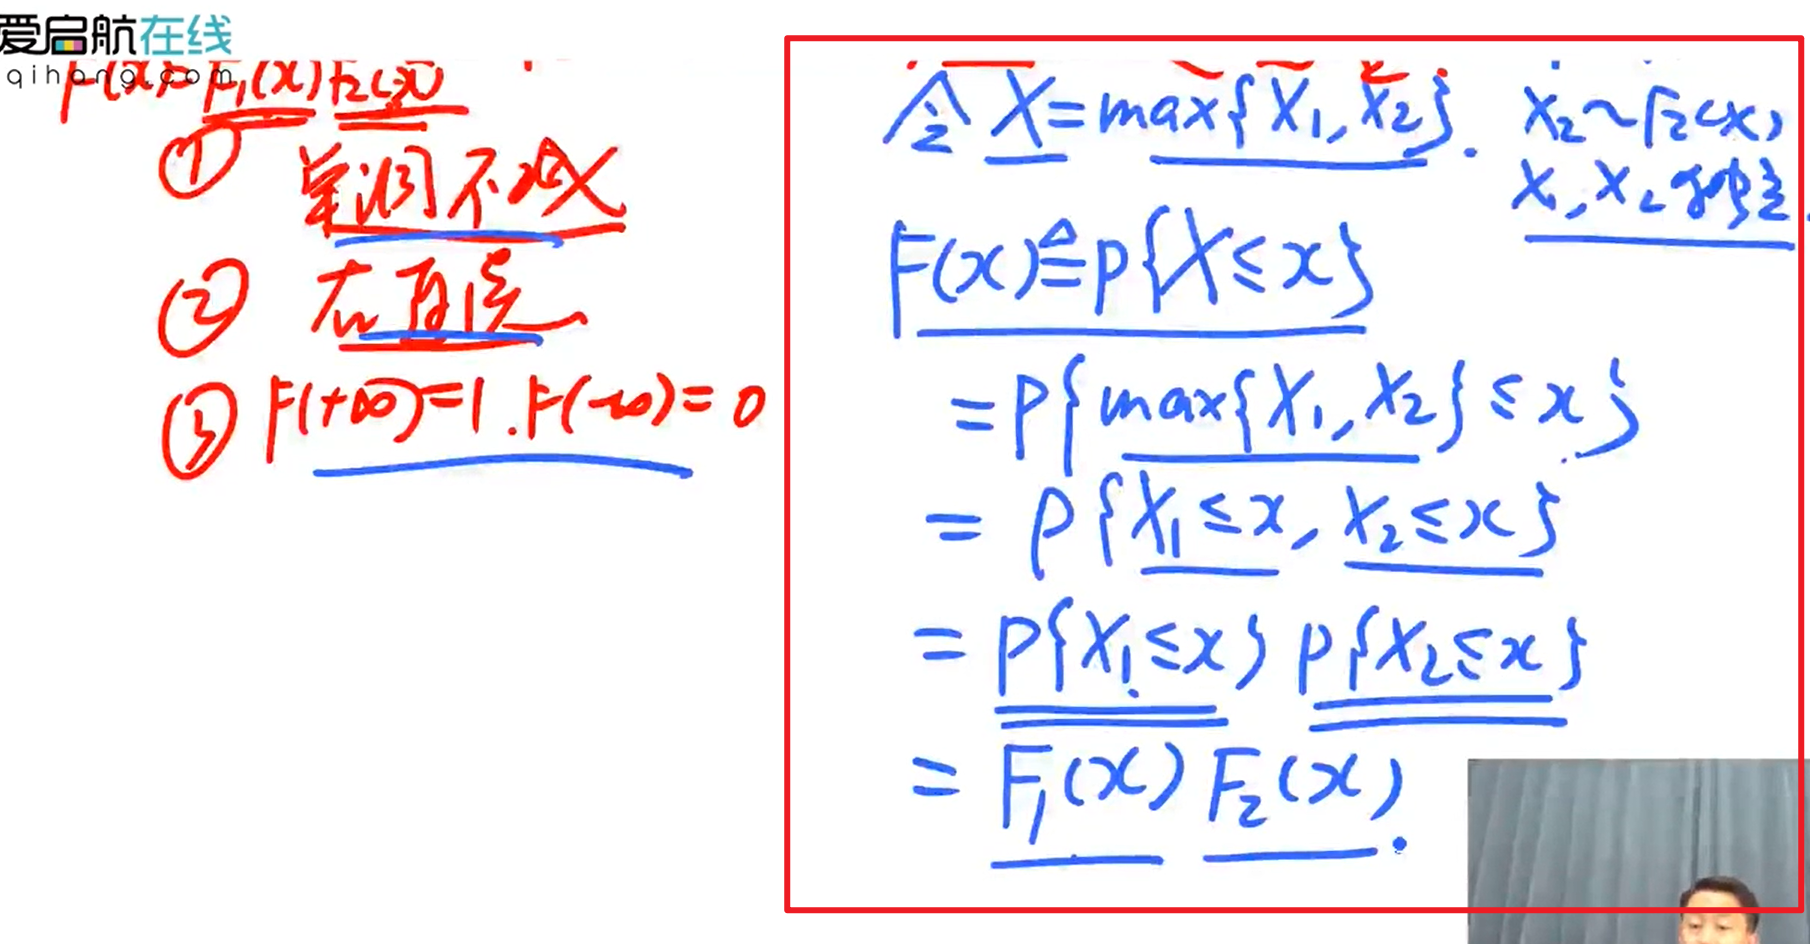 爱启航在线
qihang.com
F(x)=F₁(x)F₂(x)
① 单调不减
② 右连续
③ F(+∞)=1.F(-∞)=0
令 X=max{X₁,X₂}.
X₂~F₂(x)
X₁,X₂独立.
F(x)≜P{X≤x}
=P{max{X₁,X₂}≤x}
=P{X₁≤x,X₂≤x}
=P{X₁≤x}P{X₂≤x}
=F₁(x)F₂(x).